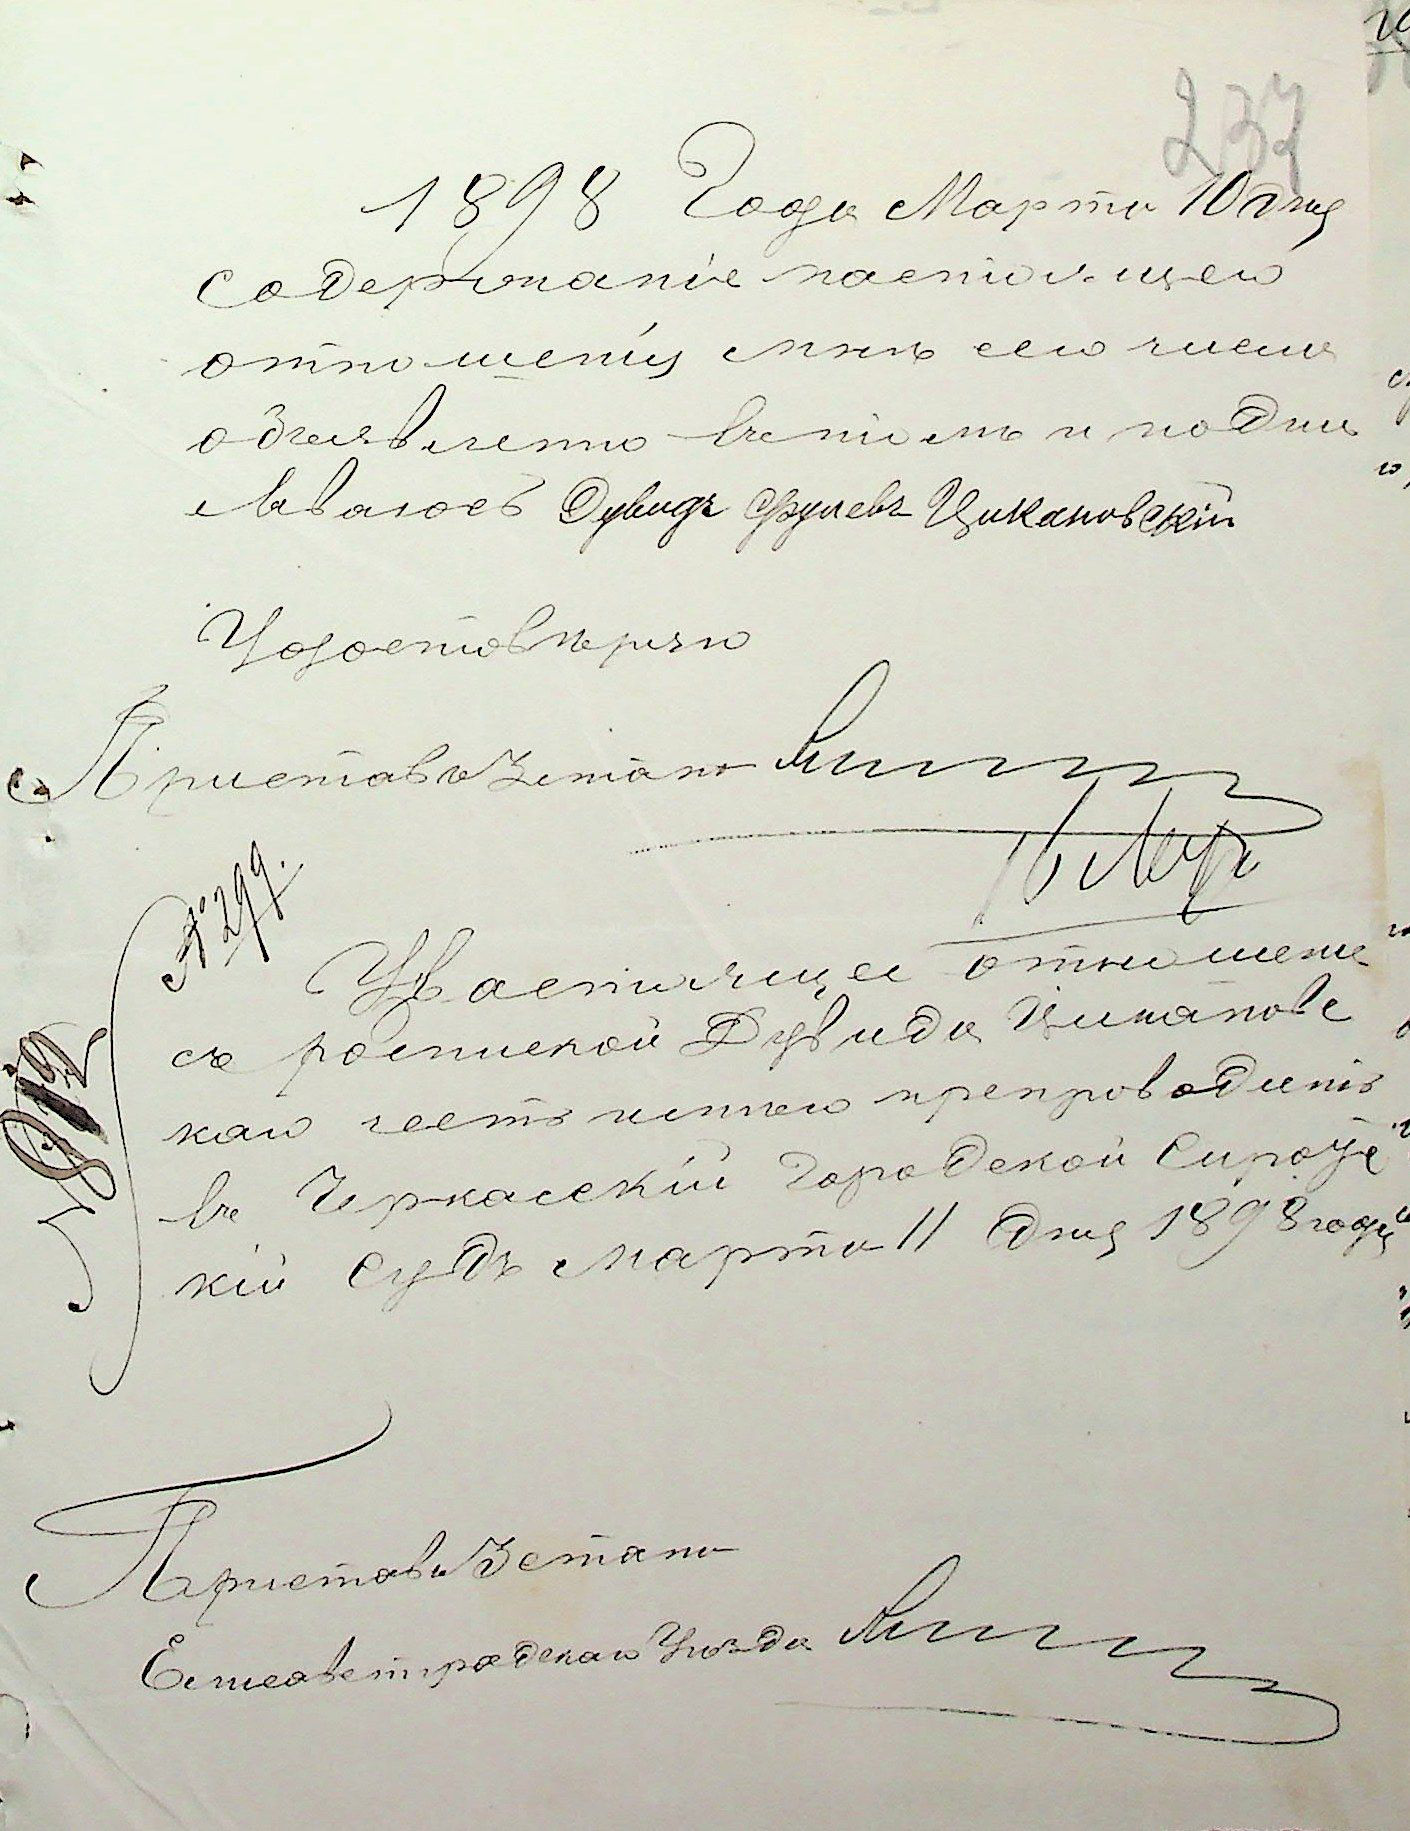 237
1898 Года Марта 10 дня
содержаніе настоящего
отношенія мнѣ сего числа
объявленно въ томъ и подпи
сываюсь Дувидъ Сруле​въ Цикановскій
Удостовѣряю
Приставъ 3 стана
№ 299.
Настоящее отношение
съ роспиской Дувида Цикановс
каго честь имѣю препроводить
въ Черкасскій Городской Сиротс
кій Судъ марта 11 дня 1898 года
Приставъ 3 стана
Елисаветградскаго Уѣзда